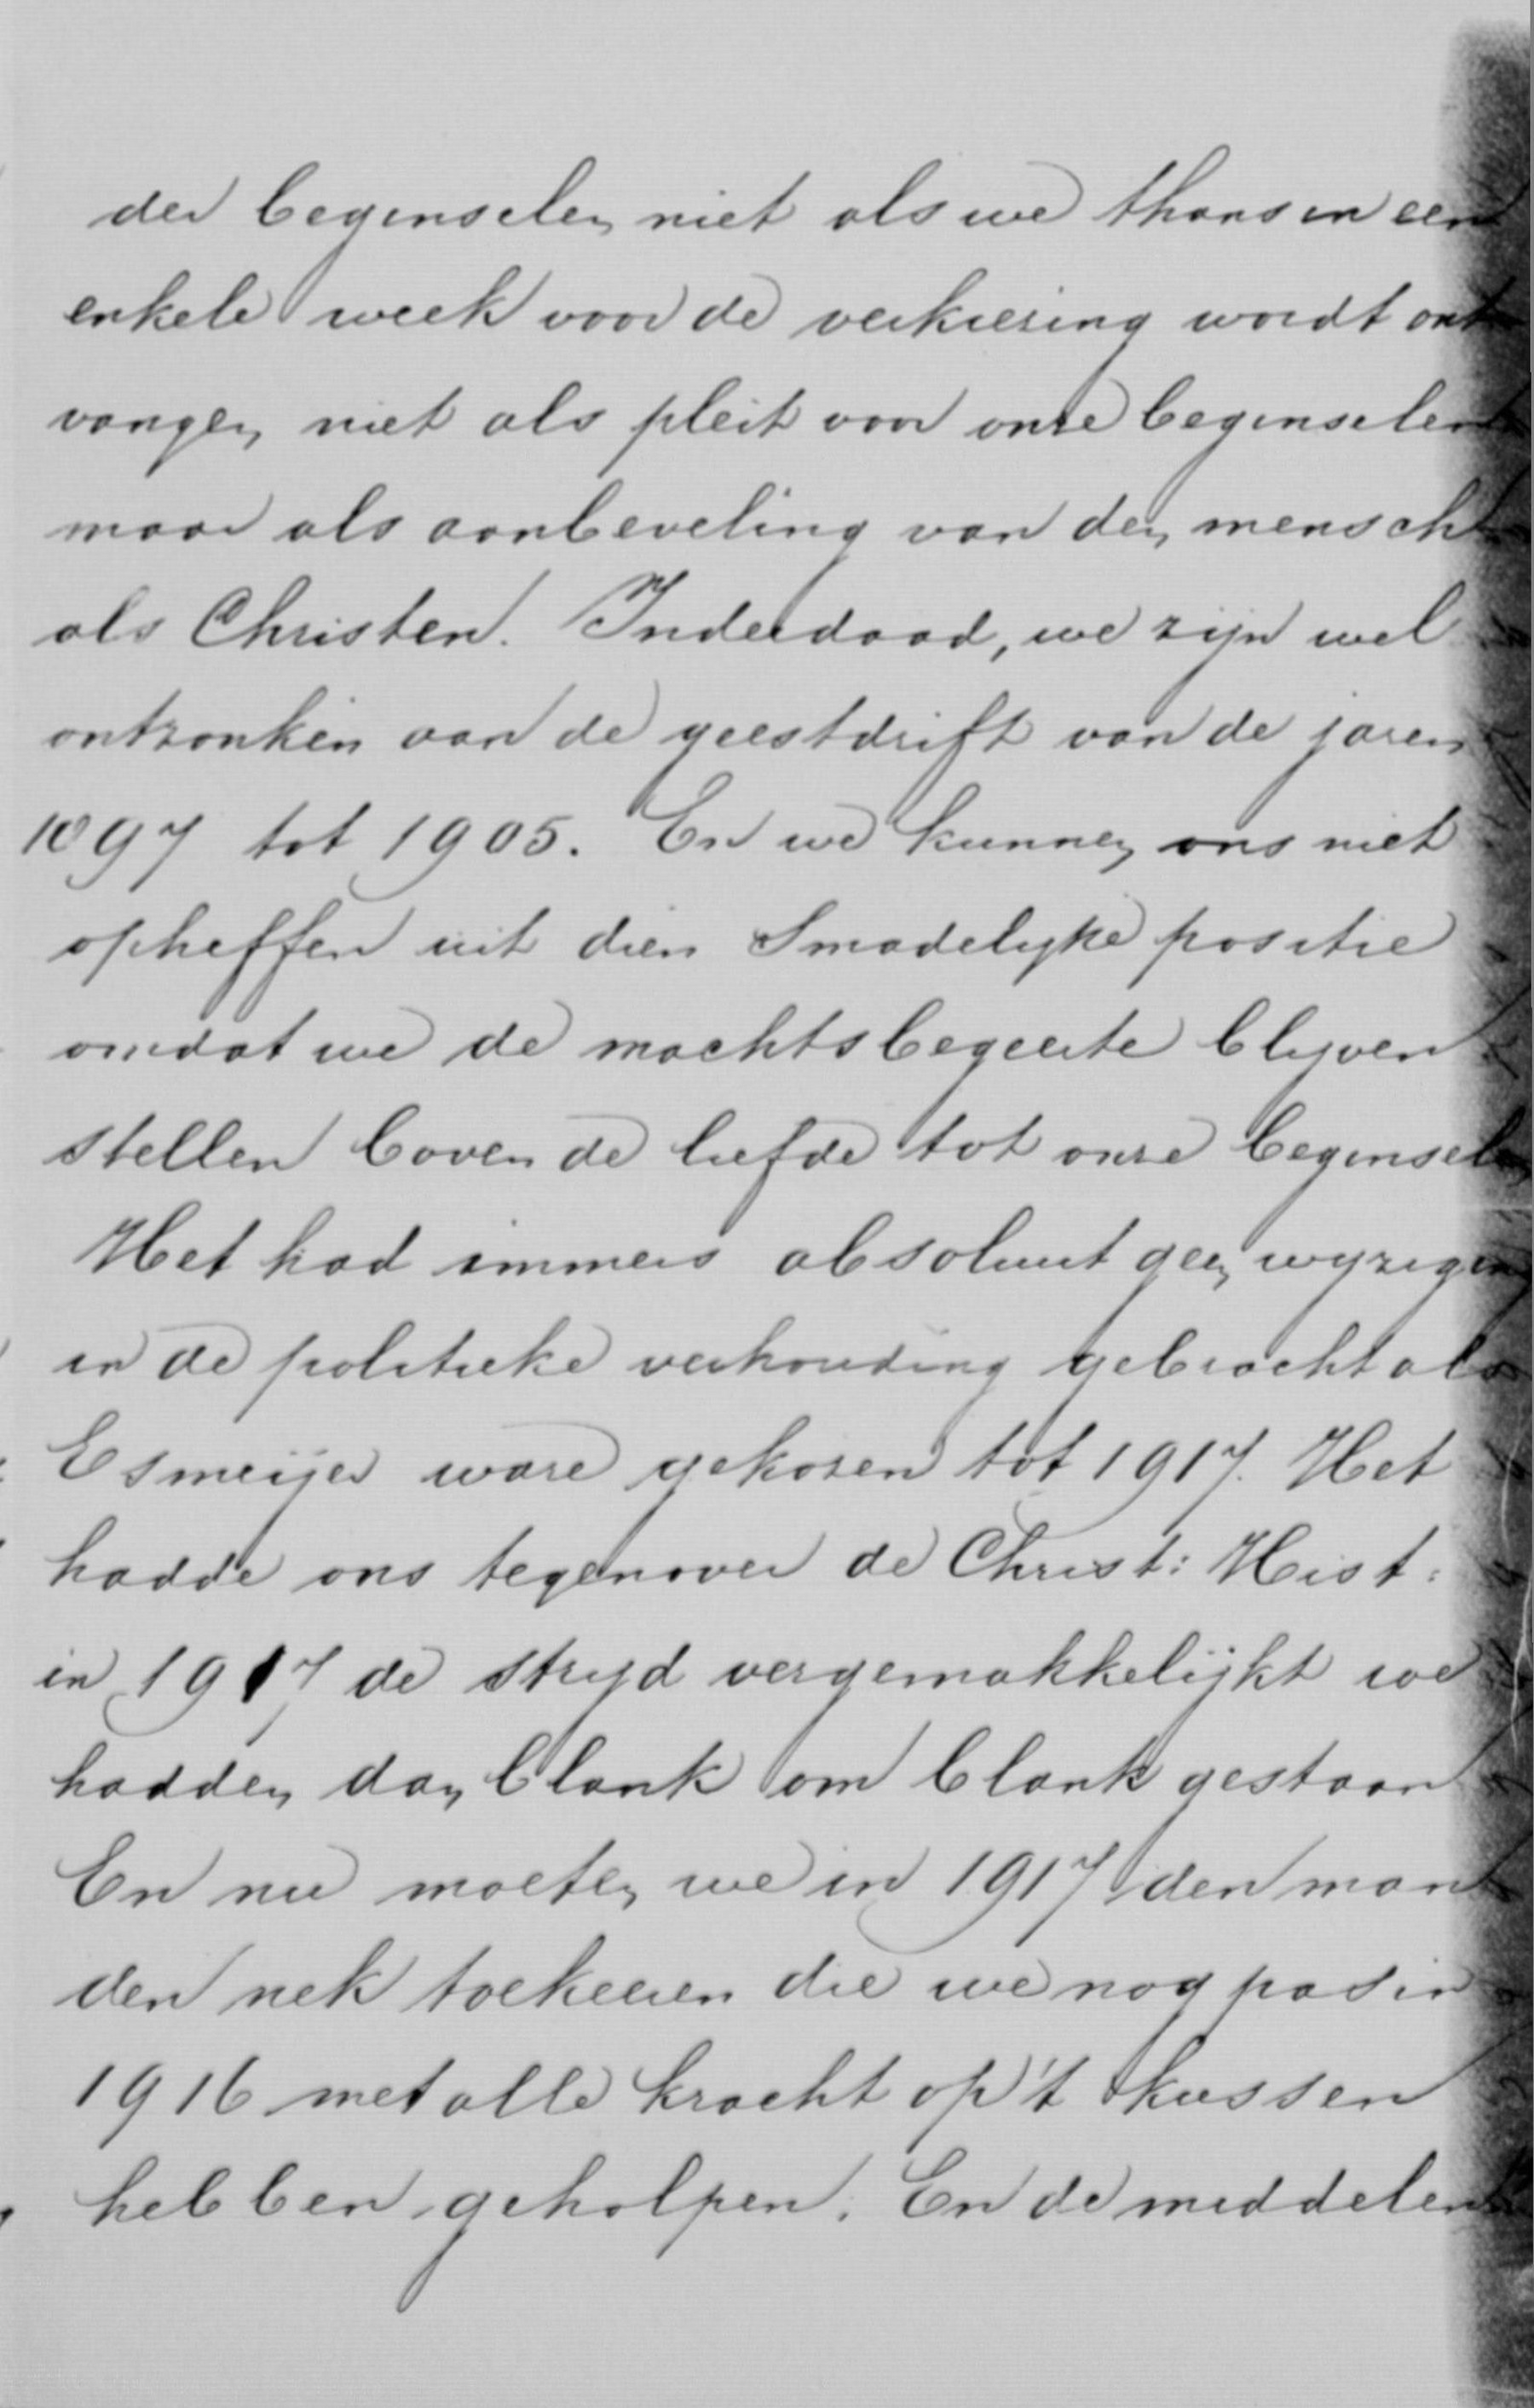 der beginselen niet als we thans in een
enkele week voor de verkiesing wordt ont
vangen niet als pleit voor onze beginselen
maar als aanbeveling van den mensch
als Christen. Inderdaad, we zijn wel
ontzonken aan de geestdrift van de jaren
1897 tot 1905. En we kunnen ons niet
opheffen uit dien Smadelyke positie
omdat we de machtsbegeerte blyven
stellen boven de liefde tot onze beginselen
Het had immers absoluut geen wyzigin
in de politieke verhouding gebracht als
Esmeijer ware gekozen tot 1917. Het
hadde ons tegenover de Christ: Hist:
in 1917 de stryd vergemakkelijkt we
hadden dan blank om blank gestaan
En nu moeten we in 1917 den man
den nek toekeeren die we nog pas in
1916 met alle kracht op 't kussen
hebben geholpen. En de middelen